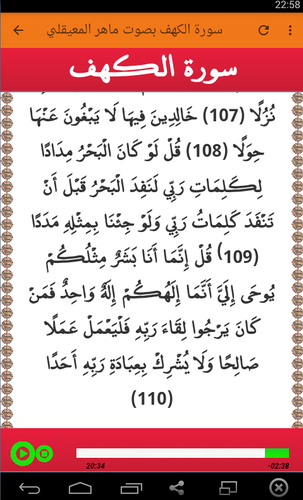 22:58
سورة الكهف بصوت ماهر المعيقلي
سورة الكهف
نُزُلًا (107) خَالِدِينَ فِيهَا لَا يَبْغُونَ عَنْهَا
حِوَلًا (108) قُلْ لَوْ كَانَ الْبَحْرُ مِدَادًا
لِكَلِمَاتِ رَبِّي لَنَفِدَ الْبَحْرُ قَبْلَ أَنْ
تَنْفَدَ كَلِمَاتُ رَبِّي وَلَوْ جِئْنَا بِمِثْلِهِ مَدَدًا
(109) قُلْ إِنَّمَا أَنَا بَشَرٌ مِثْلُكُمْ
يُوحَى إِلَيَّ أَنَّمَا إِلَهُكُمْ إِلَهٌ وَاحِدٌ فَمَنْ
كَانَ يَرْجُوا لِقَاءَ رَبِّهِ فَلْيَعْمَلْ عَمَلًا
صَالِحًا وَلَا يُشْرِكْ بِعِبَادَةِ رَبِّهِ أَحَدًا
(110)
20:34
-02:38